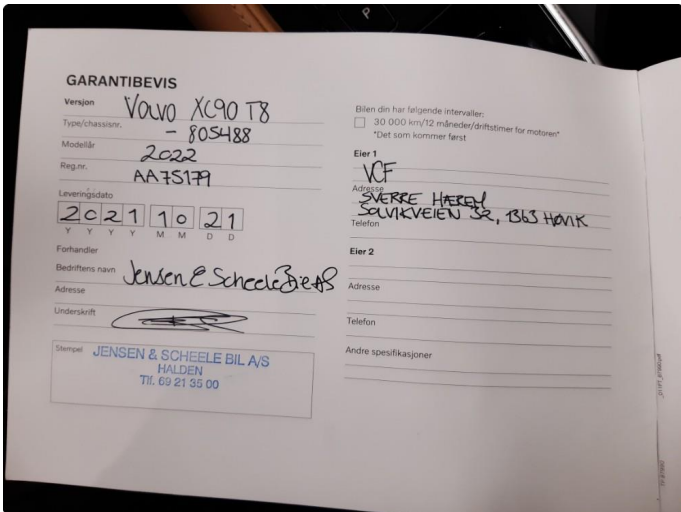 P
GARANTIBEVIS
Versjon Volvo XC90 T8
Type/chassisnr. - 805488
Modellår 2022
Reg.nr. AA75179
Leveringsdato
2021 10 21
Y Y Y Y M M D D
Forhandler
Bedriftens navn Jensen & Scheele Bil AS
Adresse
Underskrift
Stempel JENSEN & SCHEELE BIL A/S
HALDEN
Tlf. 69 21 35 00
Bilen din har følgende intervaller:
30 000 km/12 måneder/driftstimer for motoren*
*Det som kommer først
Eier 1
VCF
Adresse SVERRE HÆREM
SOLVIKVEIEN 32, 1363 HØVIK
Telefon
Eier 2
Adresse
Telefon
Andre spesifikasjoner